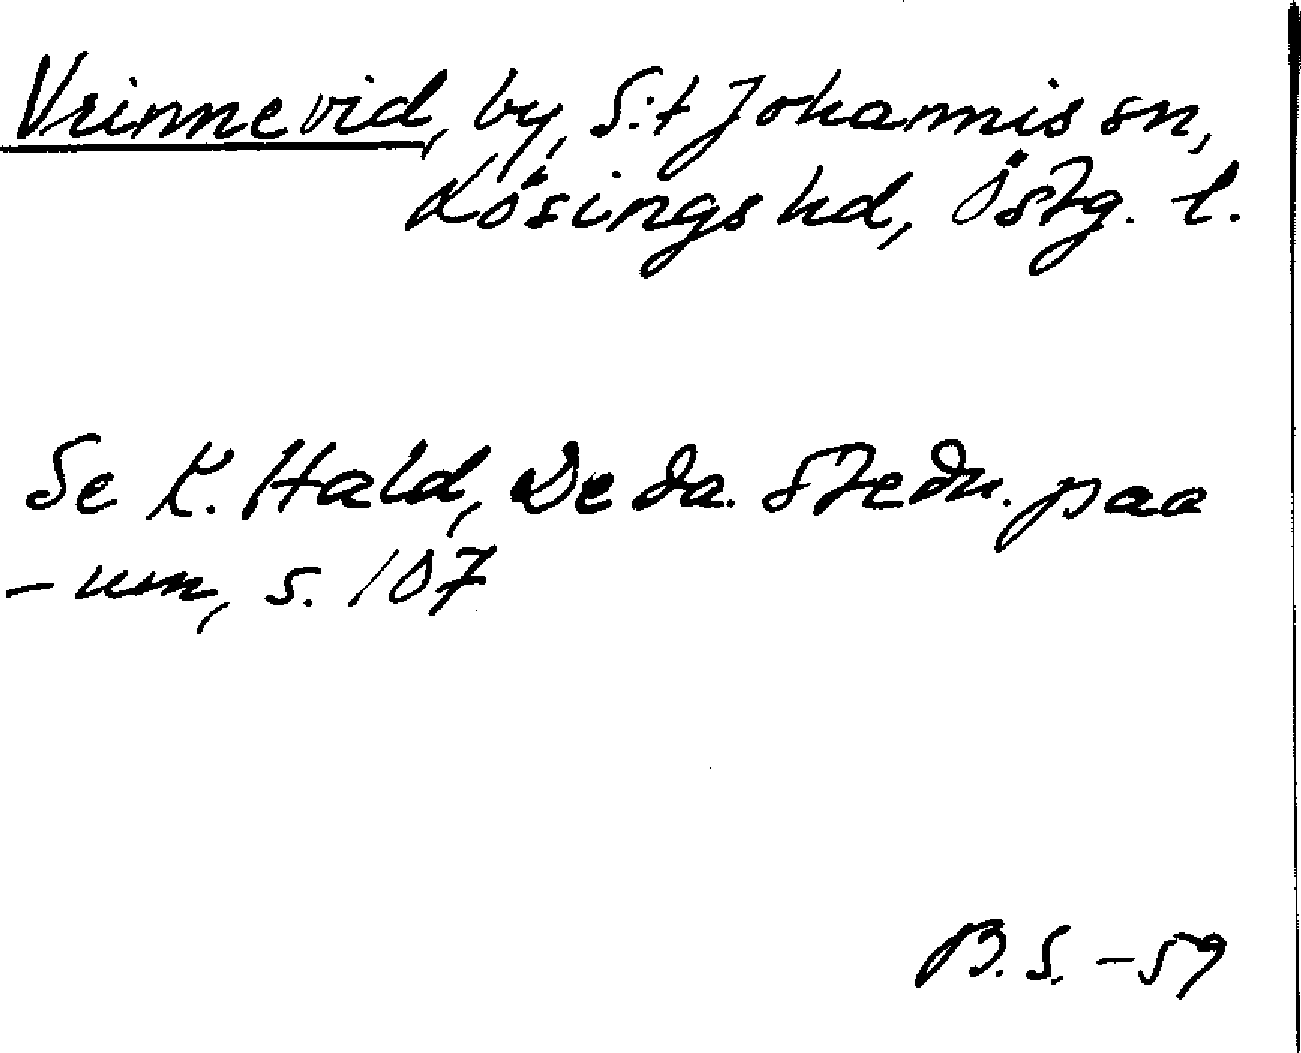 Vrinnevid, by, S:t Johannis sn,
Lösings hd, Östg. l.
Se K. Hald, De da. Stedn. paa
- um, s. 107
B.S. -59